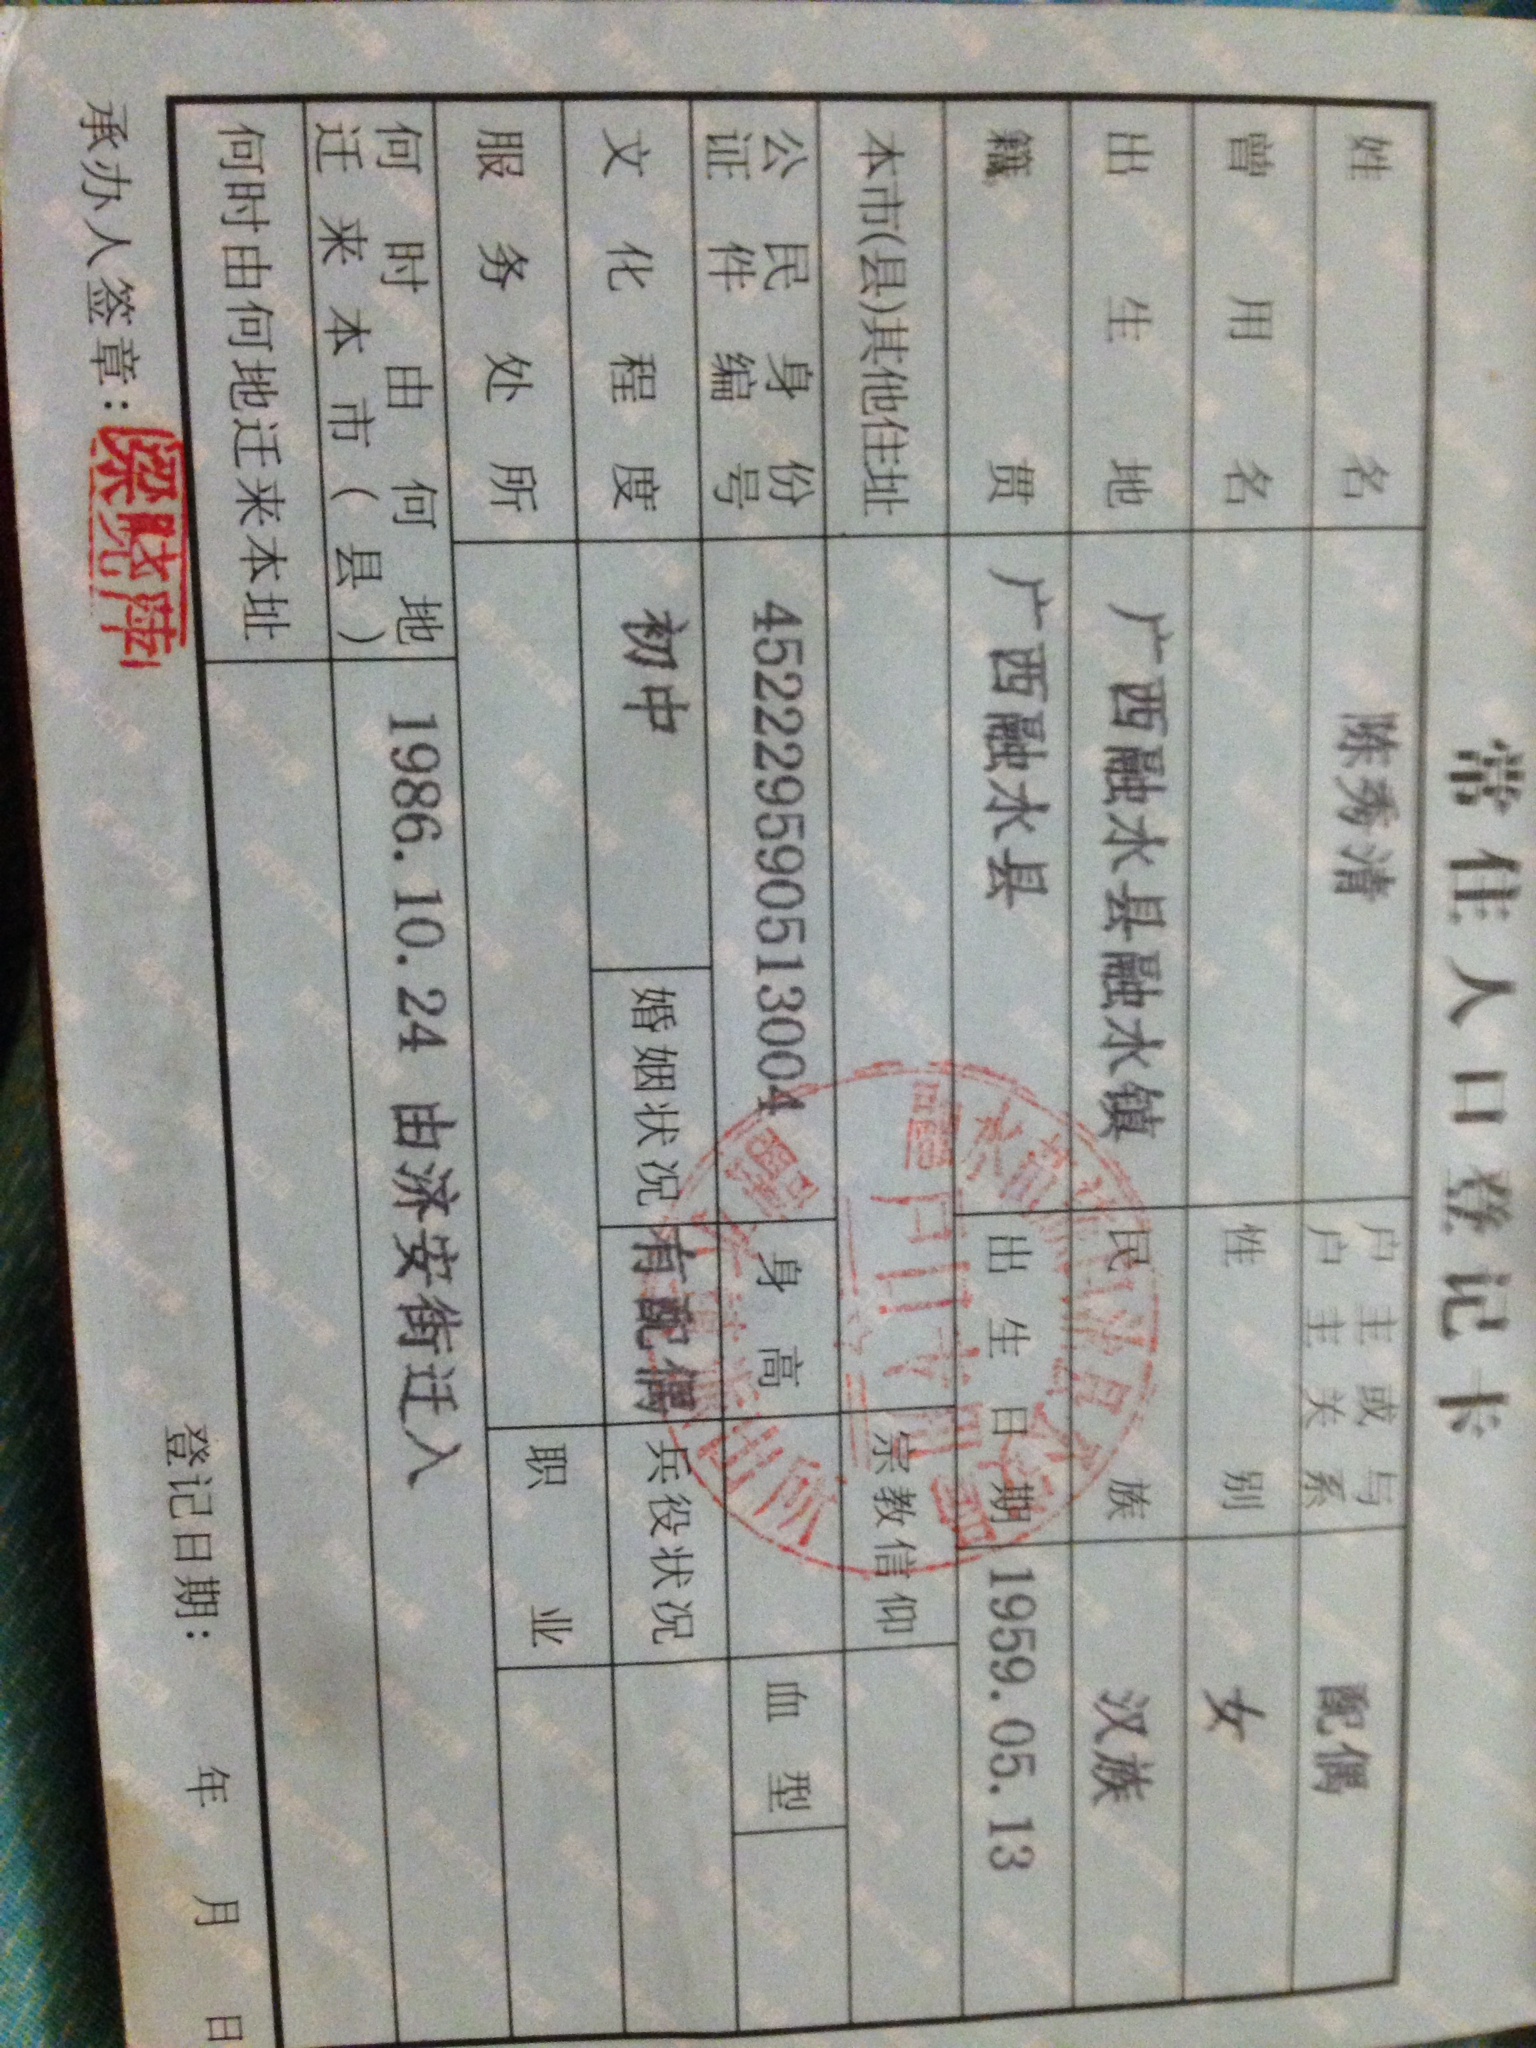 常住人口登记卡
姓名 陈秀清 户主或与户主关系 配偶
曾用名 性别 女
出生地 广西融水县融水镇 民族 汉族
籍贯 广西融水县 出生日期 1959.05.13
本市(县)其他住址 宗教信仰
公民身份证件编号 452229590513004 身高 血型
文化程度 初中 婚姻状况 有配偶 兵役状况
服务处所 职业
何时由何地迁来本市(县) 1986.10.24 由济安街迁入
何时由何地迁来本址
承办人签章: 登记日期: 年 月 日